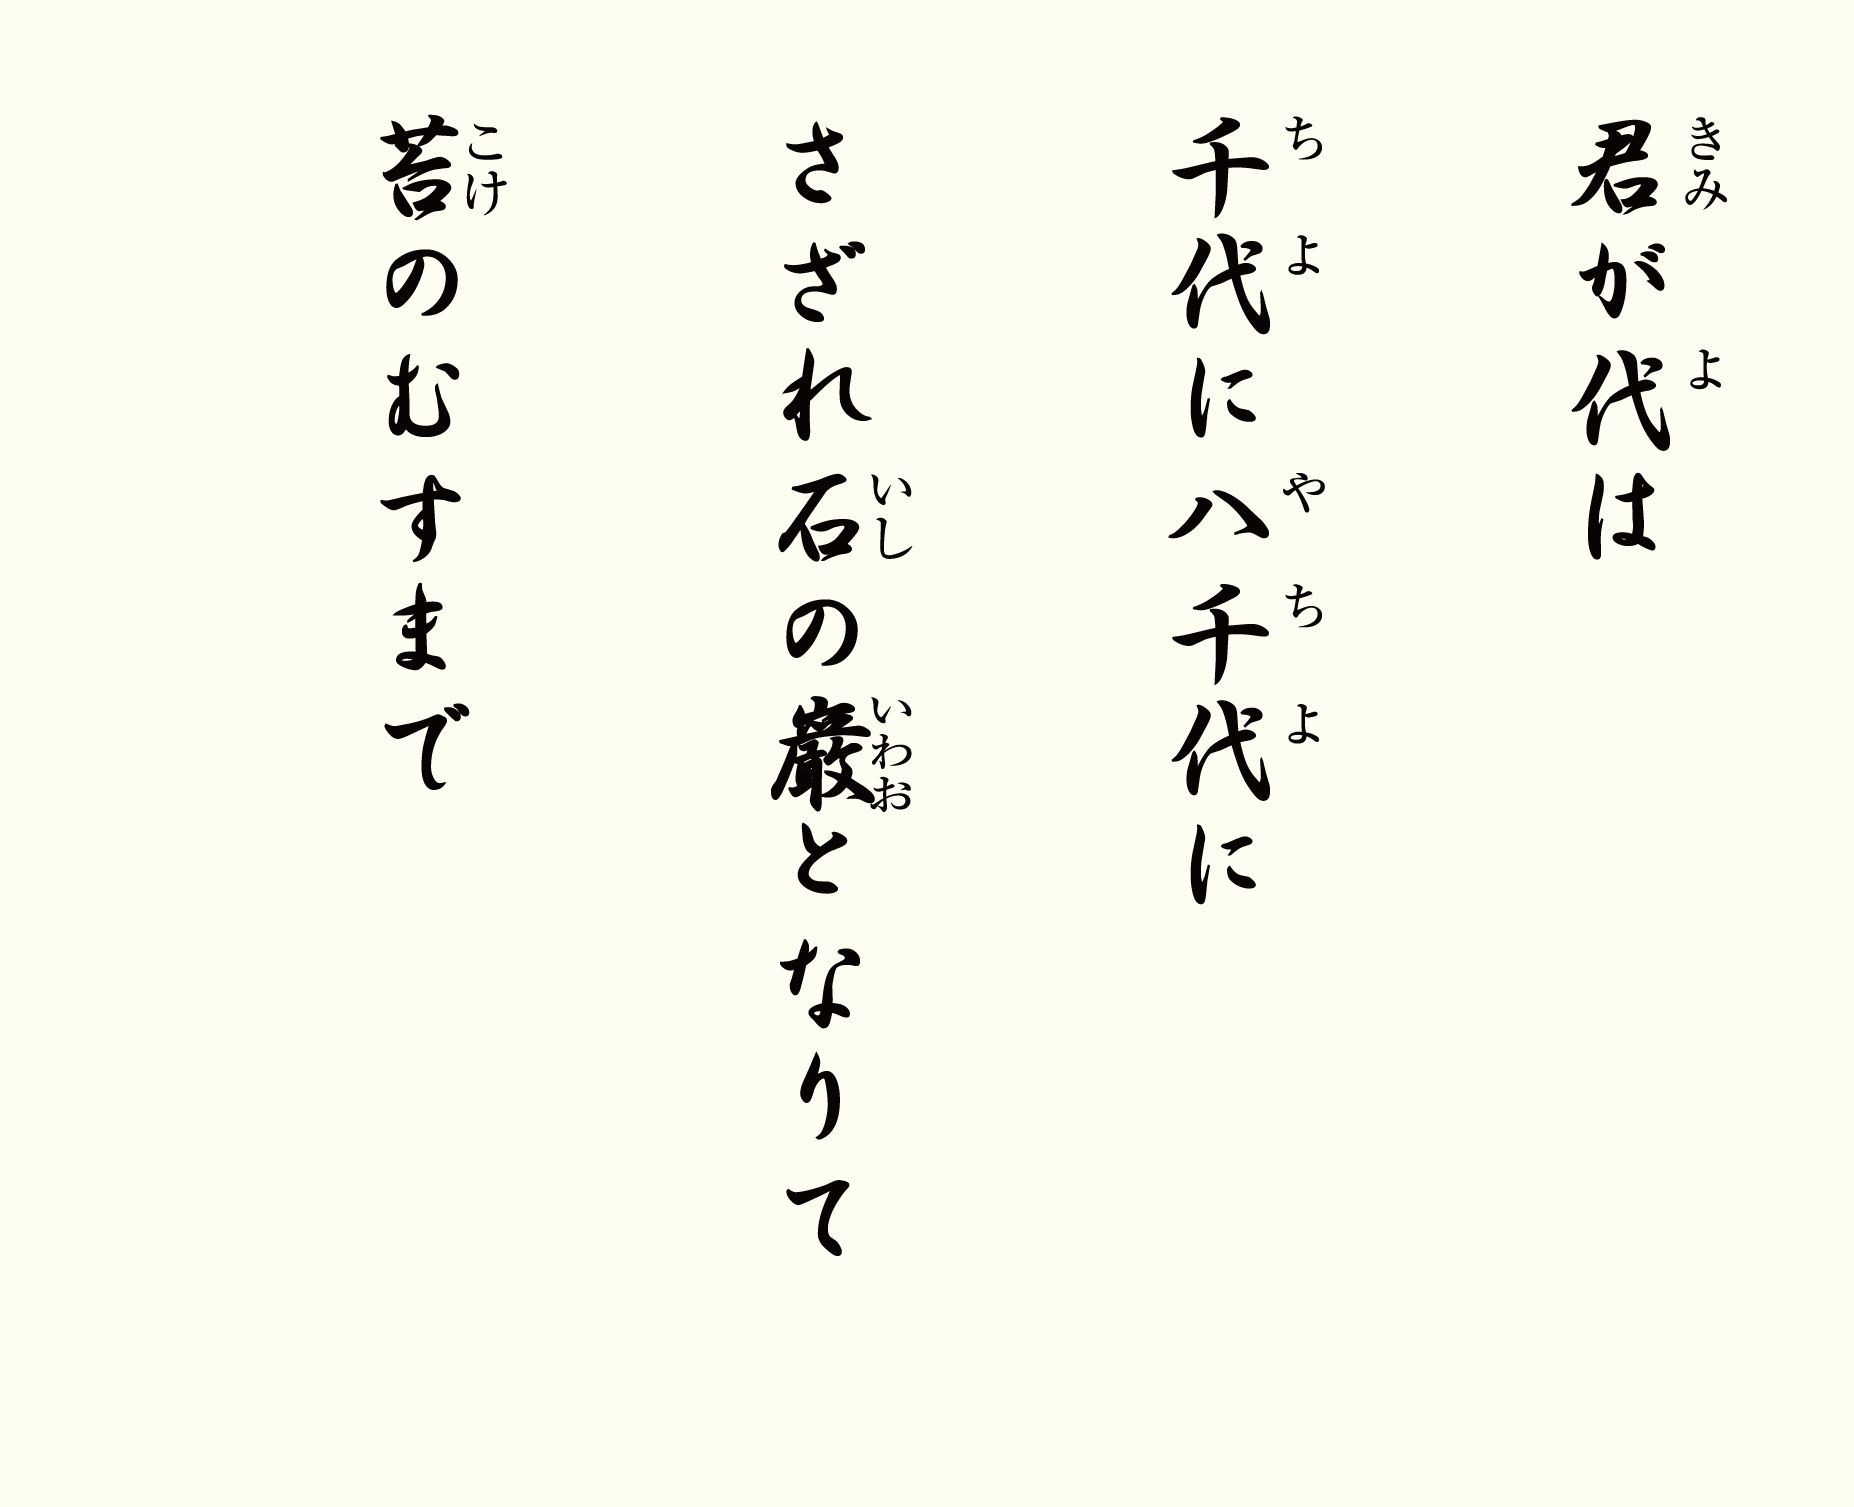 君が代は
千代に八千代に
さざれ石の巌となりて
苔のむすまで
きみ よ
ち よ や ち よ
いし いわお
こけ